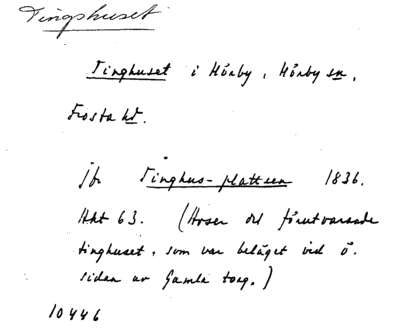 Tingshuset
Tinghuset i Hörby, Hörby sn,
Frosta hd.
jfr Tinghus-plattsen 1836.
Hkt 63. (Avser det förutvarande
tinghuset, som var beläget vid ö.
sidan av Gamla torg.)
10446